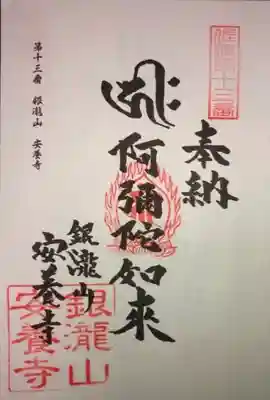 奉納
阿彌陀如來
銀瀧山
安養寺
第十三番 銀瀧山 安養寺
銀瀧山
安養寺